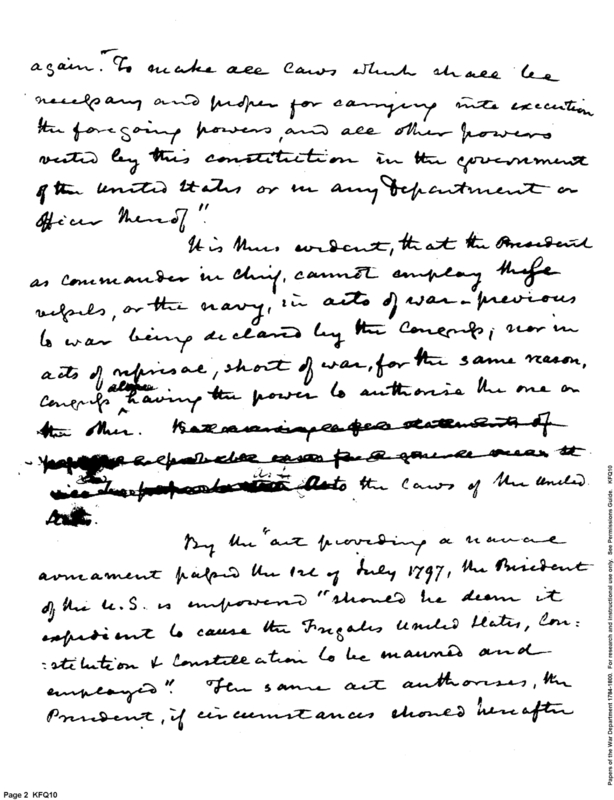 again. "To make all Laws which shall be
necessary and proper for carrying into execution
the foregoing powers, and all other powers
vested by this constitution in the government
of the United States or in any Department or
Officer thereof".
It is thus evident, that the President
as commander in chief, cannot employ these
vessels, or the navy, in acts of war previous
to war being declared by the Congress; nor in
acts of reprisal, short of war, for the same reason,
alone
Congress having the power to authorise the one or
the other.
as to the Laws of the United
By the "act providing a naval
armament passed the 1st of July 1797, the President
of the U.S. is empowered "should he deem it
expedient to cause the Frigates United States, Con:
:stitution & Constellation to be manned and
employed". The same act authorises, the
President, if circumstances should hereafter
Page 2 KFQ10
Papers of the War Department 1784-1800. For research and instructional use only. See Permissions Guide. KFQ10